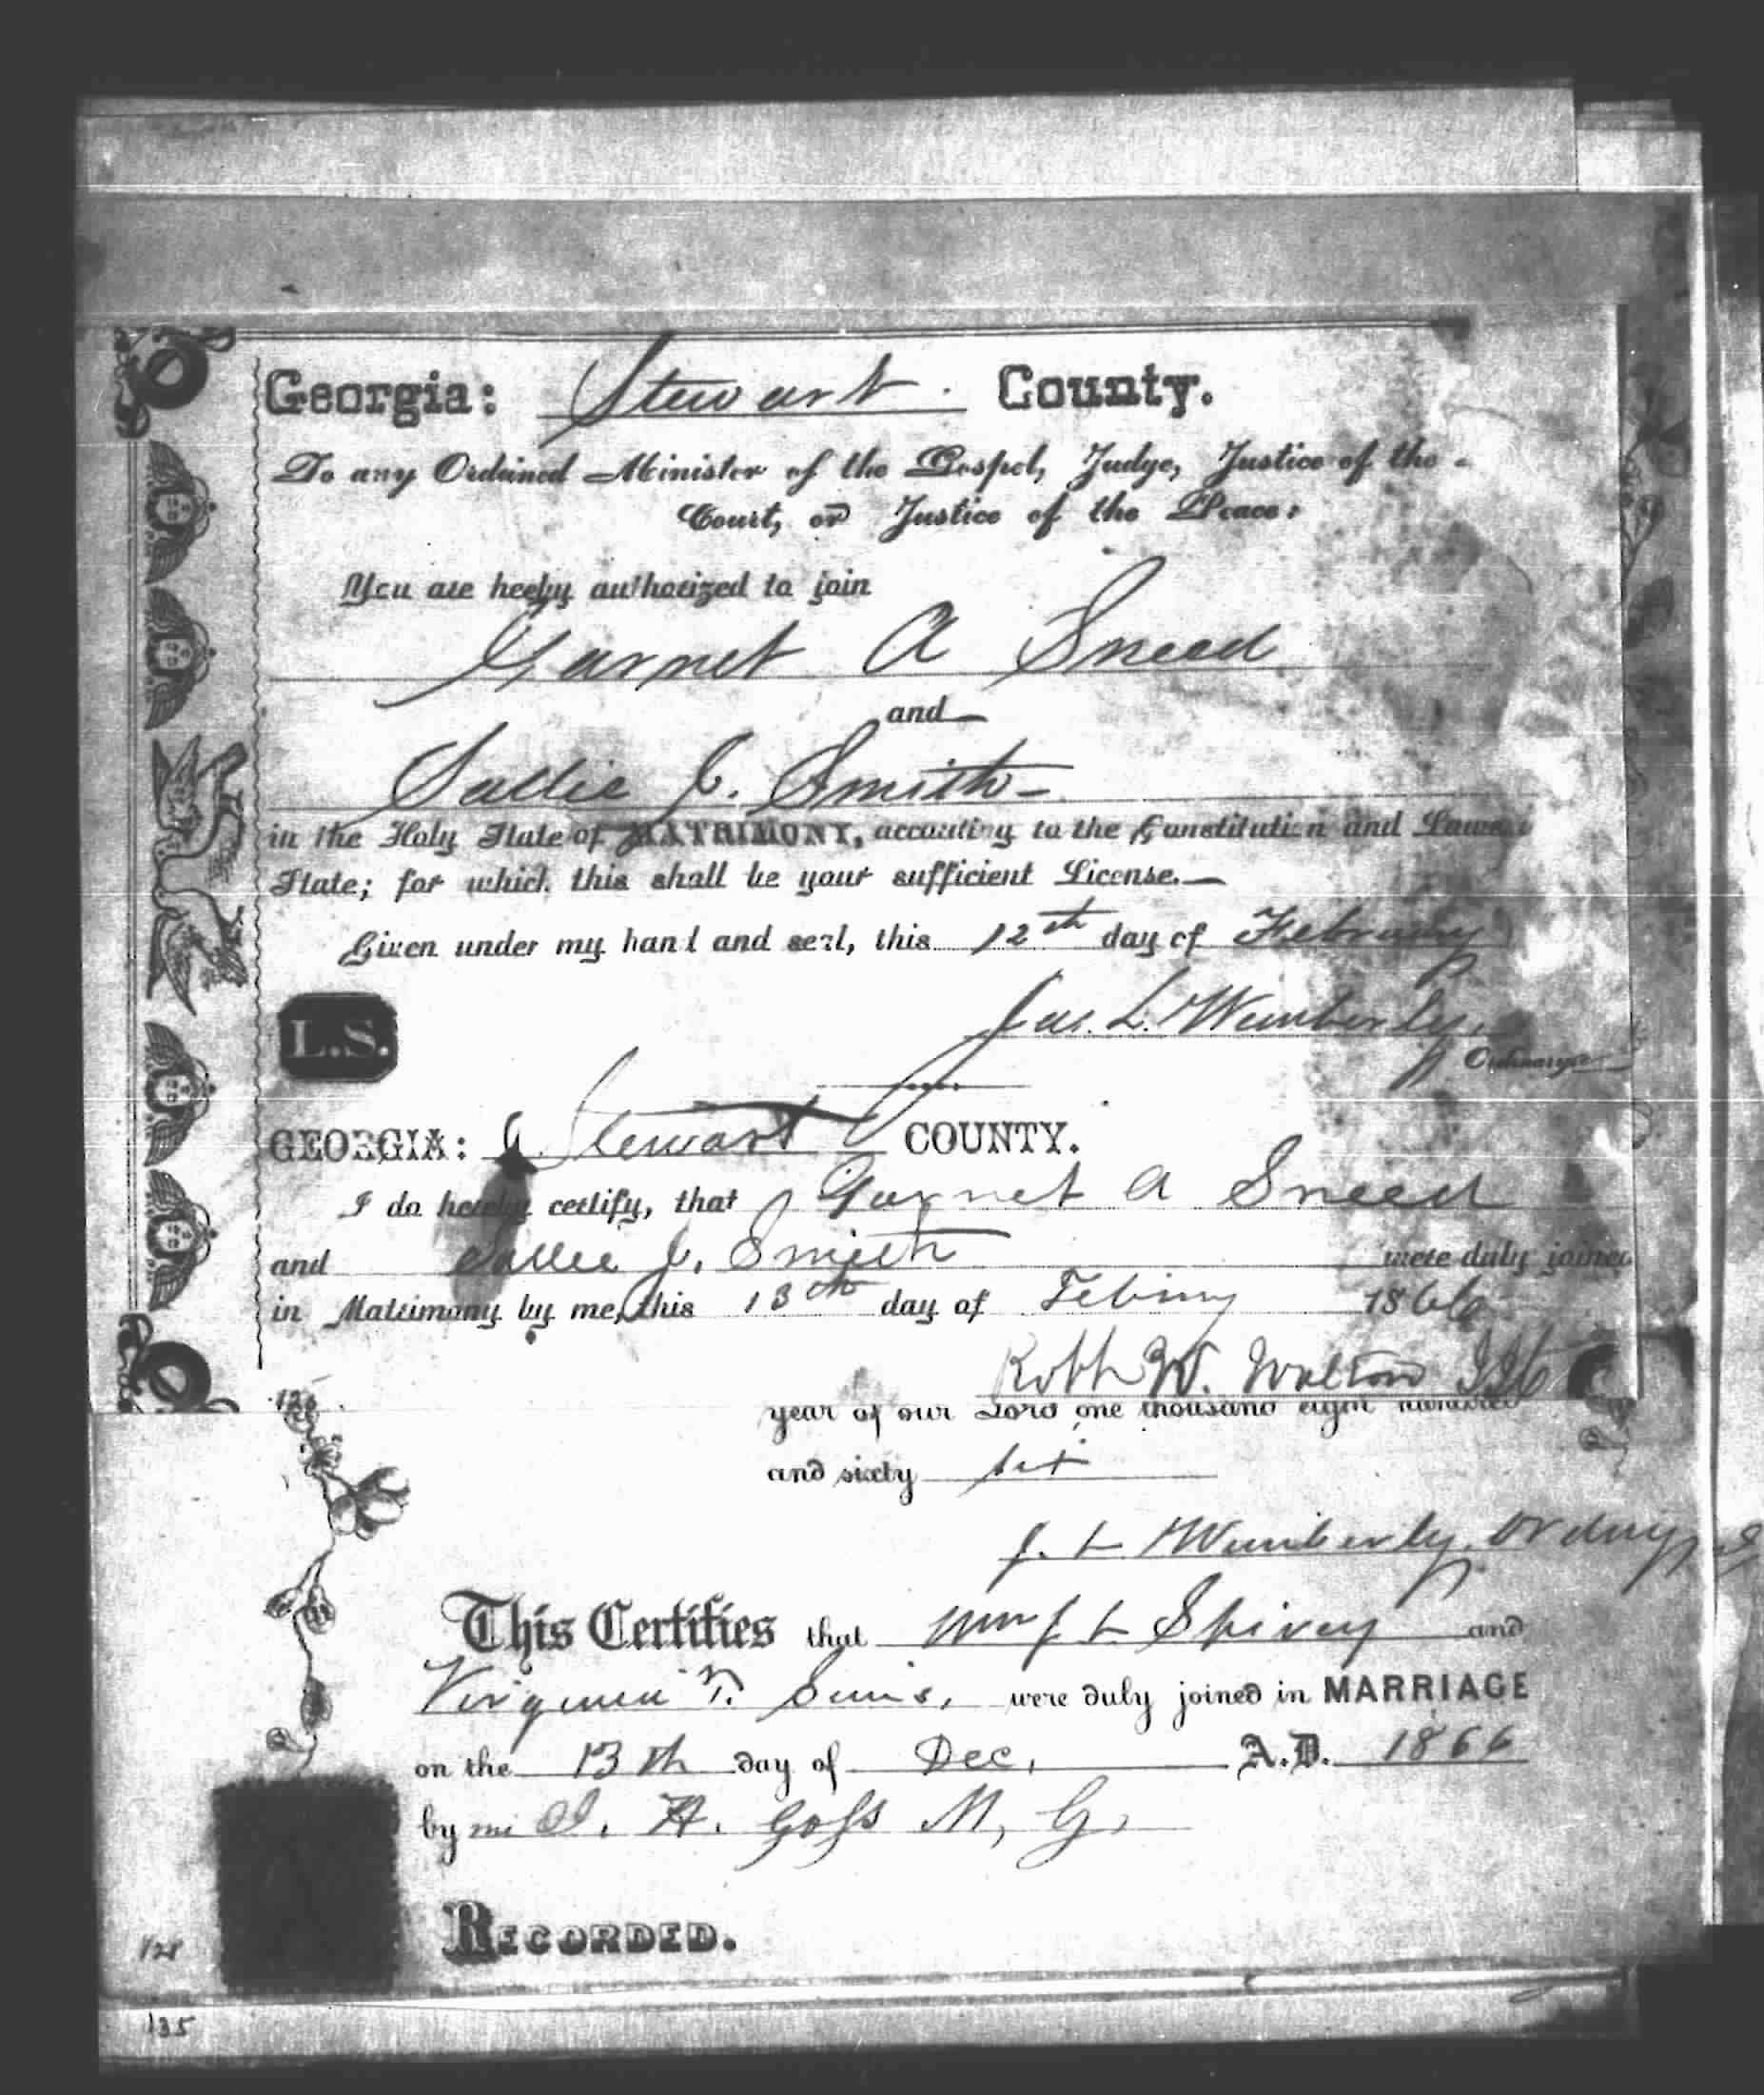 Georgia: Stewart County.
To any Ordained Minister of the Gospel, Judge, Justice of the
Court, or Justice of the Peace:
You are hereby authorized to join
Garnet A Sneed
and
Sallie J. Smith
in the Holy State of MATRIMONY, according to the Constitution and Laws
State; for which this shall be your sufficient License.
Given under my hand and seal, this 12th day of February
L.S.
Jas. L. Wimberly,
Ordinary
GEORGIA: Stewart COUNTY.
I do hereby certify, that Garnet A Sneed
and Sallie J. Smith were duly joined
in Matrimony by me, this 13th day of Febury 1866
Robt W. Walton
126
year of our Lord one thousand eight hundred
and sixty six
J. L Wimberly, Ordny
This Certifies that Wm J L Spivey and
Virginia T. Sims, were duly joined in MARRIAGE
on the 13th day of Dec, A.D. 1866
by me I. H. Goss M, G,
RECORDED.
128
135